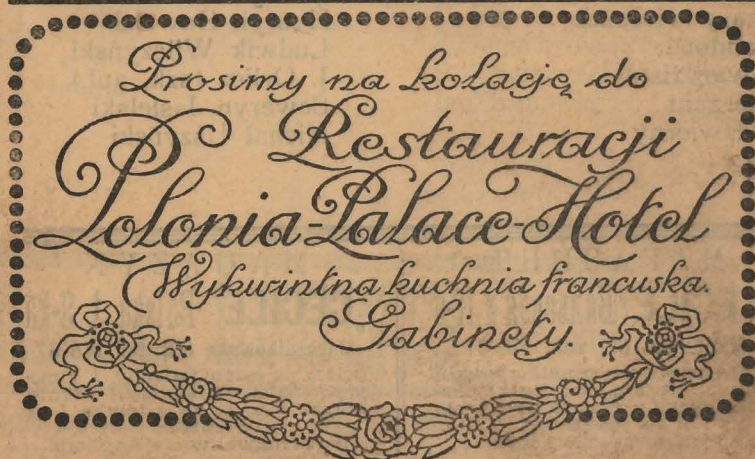 Prosimy na kolację do
Restauracji
Polonia-Palace-Hotel
Wykwintna kuchnia francuska.
Gabinety.